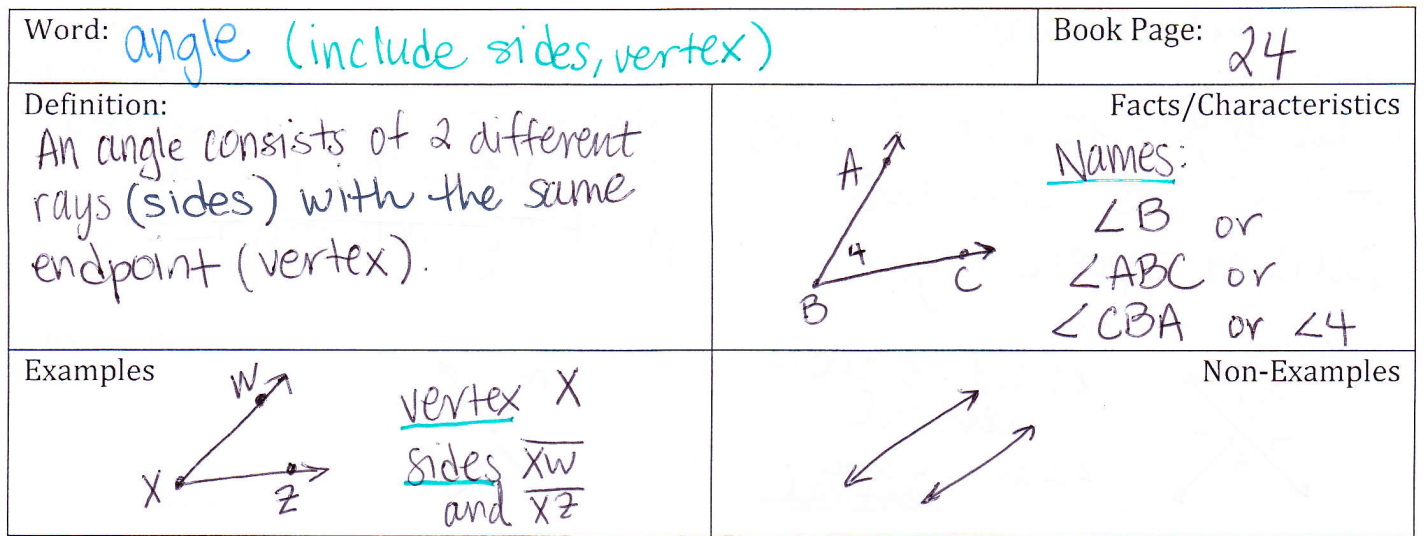 Word: angle (include sides, vertex)
Book Page: 24
Definition:
An angle consists of 2 different
rays (sides) with the same
endpoint (vertex).
Facts/Characteristics
A
4
B
C
Names:
∠B or
∠ABC or
∠CBA or ∠4
Examples
W
X
Z
vertex X
sides X̅W̅
and X̅Z̅
Non-Examples